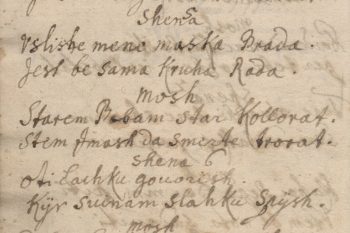 shena
Vslishe mene maska Brada.
Jest be sama Kruha Rada.
mosh
Starem Babam star Kollorat.
Stem Amash da smerte trorat.
shena
oti Lachku gouorish.
Kyr suinam slahku Spysh.
mosh